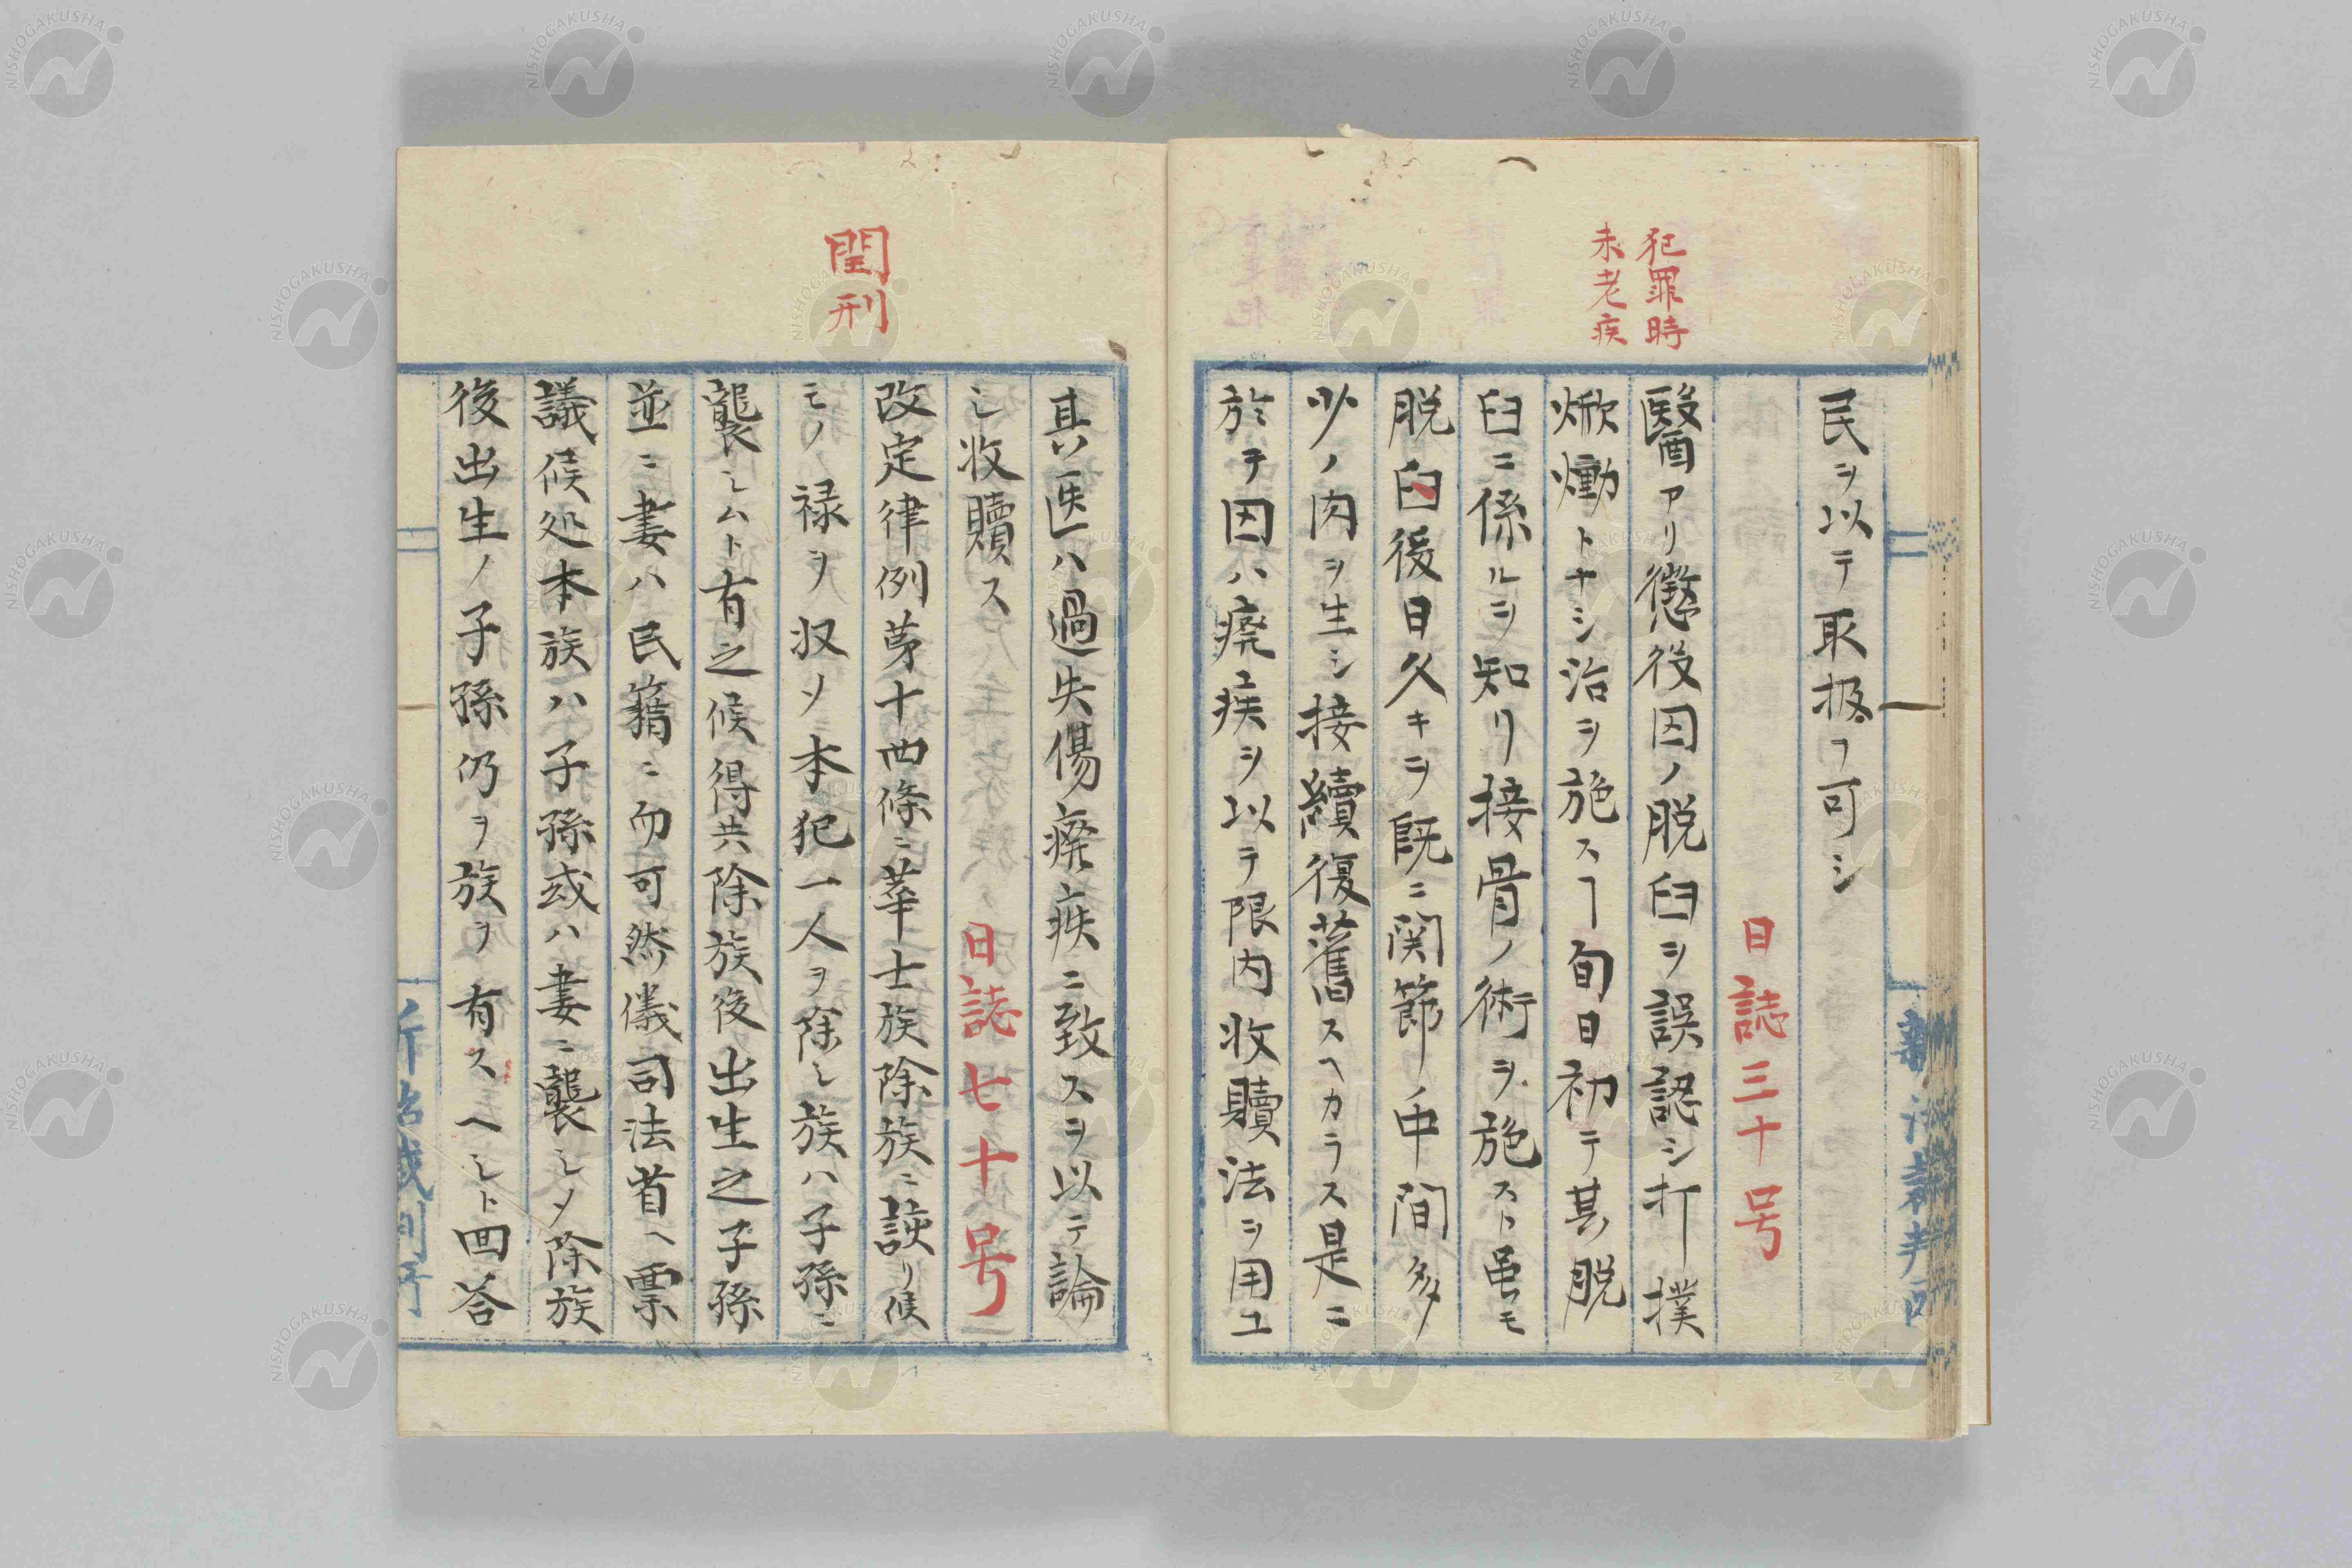 民ヲ以テ取扱フ可シ
日誌三十号
犯罪時
未老疾
醫アリ懲役囚ノ脱臼ヲ誤認シ打撲
焮衝トナシ治ヲ施スヿ旬日初テ其脱
臼ニ係ルヲ知リ接骨ノ術ヲ施スト虽モ
脱臼後日久キヲ既ニ関節ノ中間多
少ノ肉ヲ生シ接續復舊スヘカラス是ニ
於テ囚ハ癈疾ヲ以テ限内收贖法ヲ用ユ
其医ハ過失傷癈疾ニ致スヲ以テ論
シ收贖ス
日誌七十号
閏刑
改定律例第十四條ニ華士族除族ニ該リ候
モノ禄ヲ収メ本犯一人ヲ除シ族ハ子孫ニ
襲シムト有之候得共除族後出生之子孫
並ニ妻ハ民籍ニ而可然儀司法省ヘ禀
議候処本族ハ子孫或ハ妻ニ襲シメ除族
後出生ノ子孫仍ヲ族ヲ有スヘシト回答
NISHOGAKUSHA